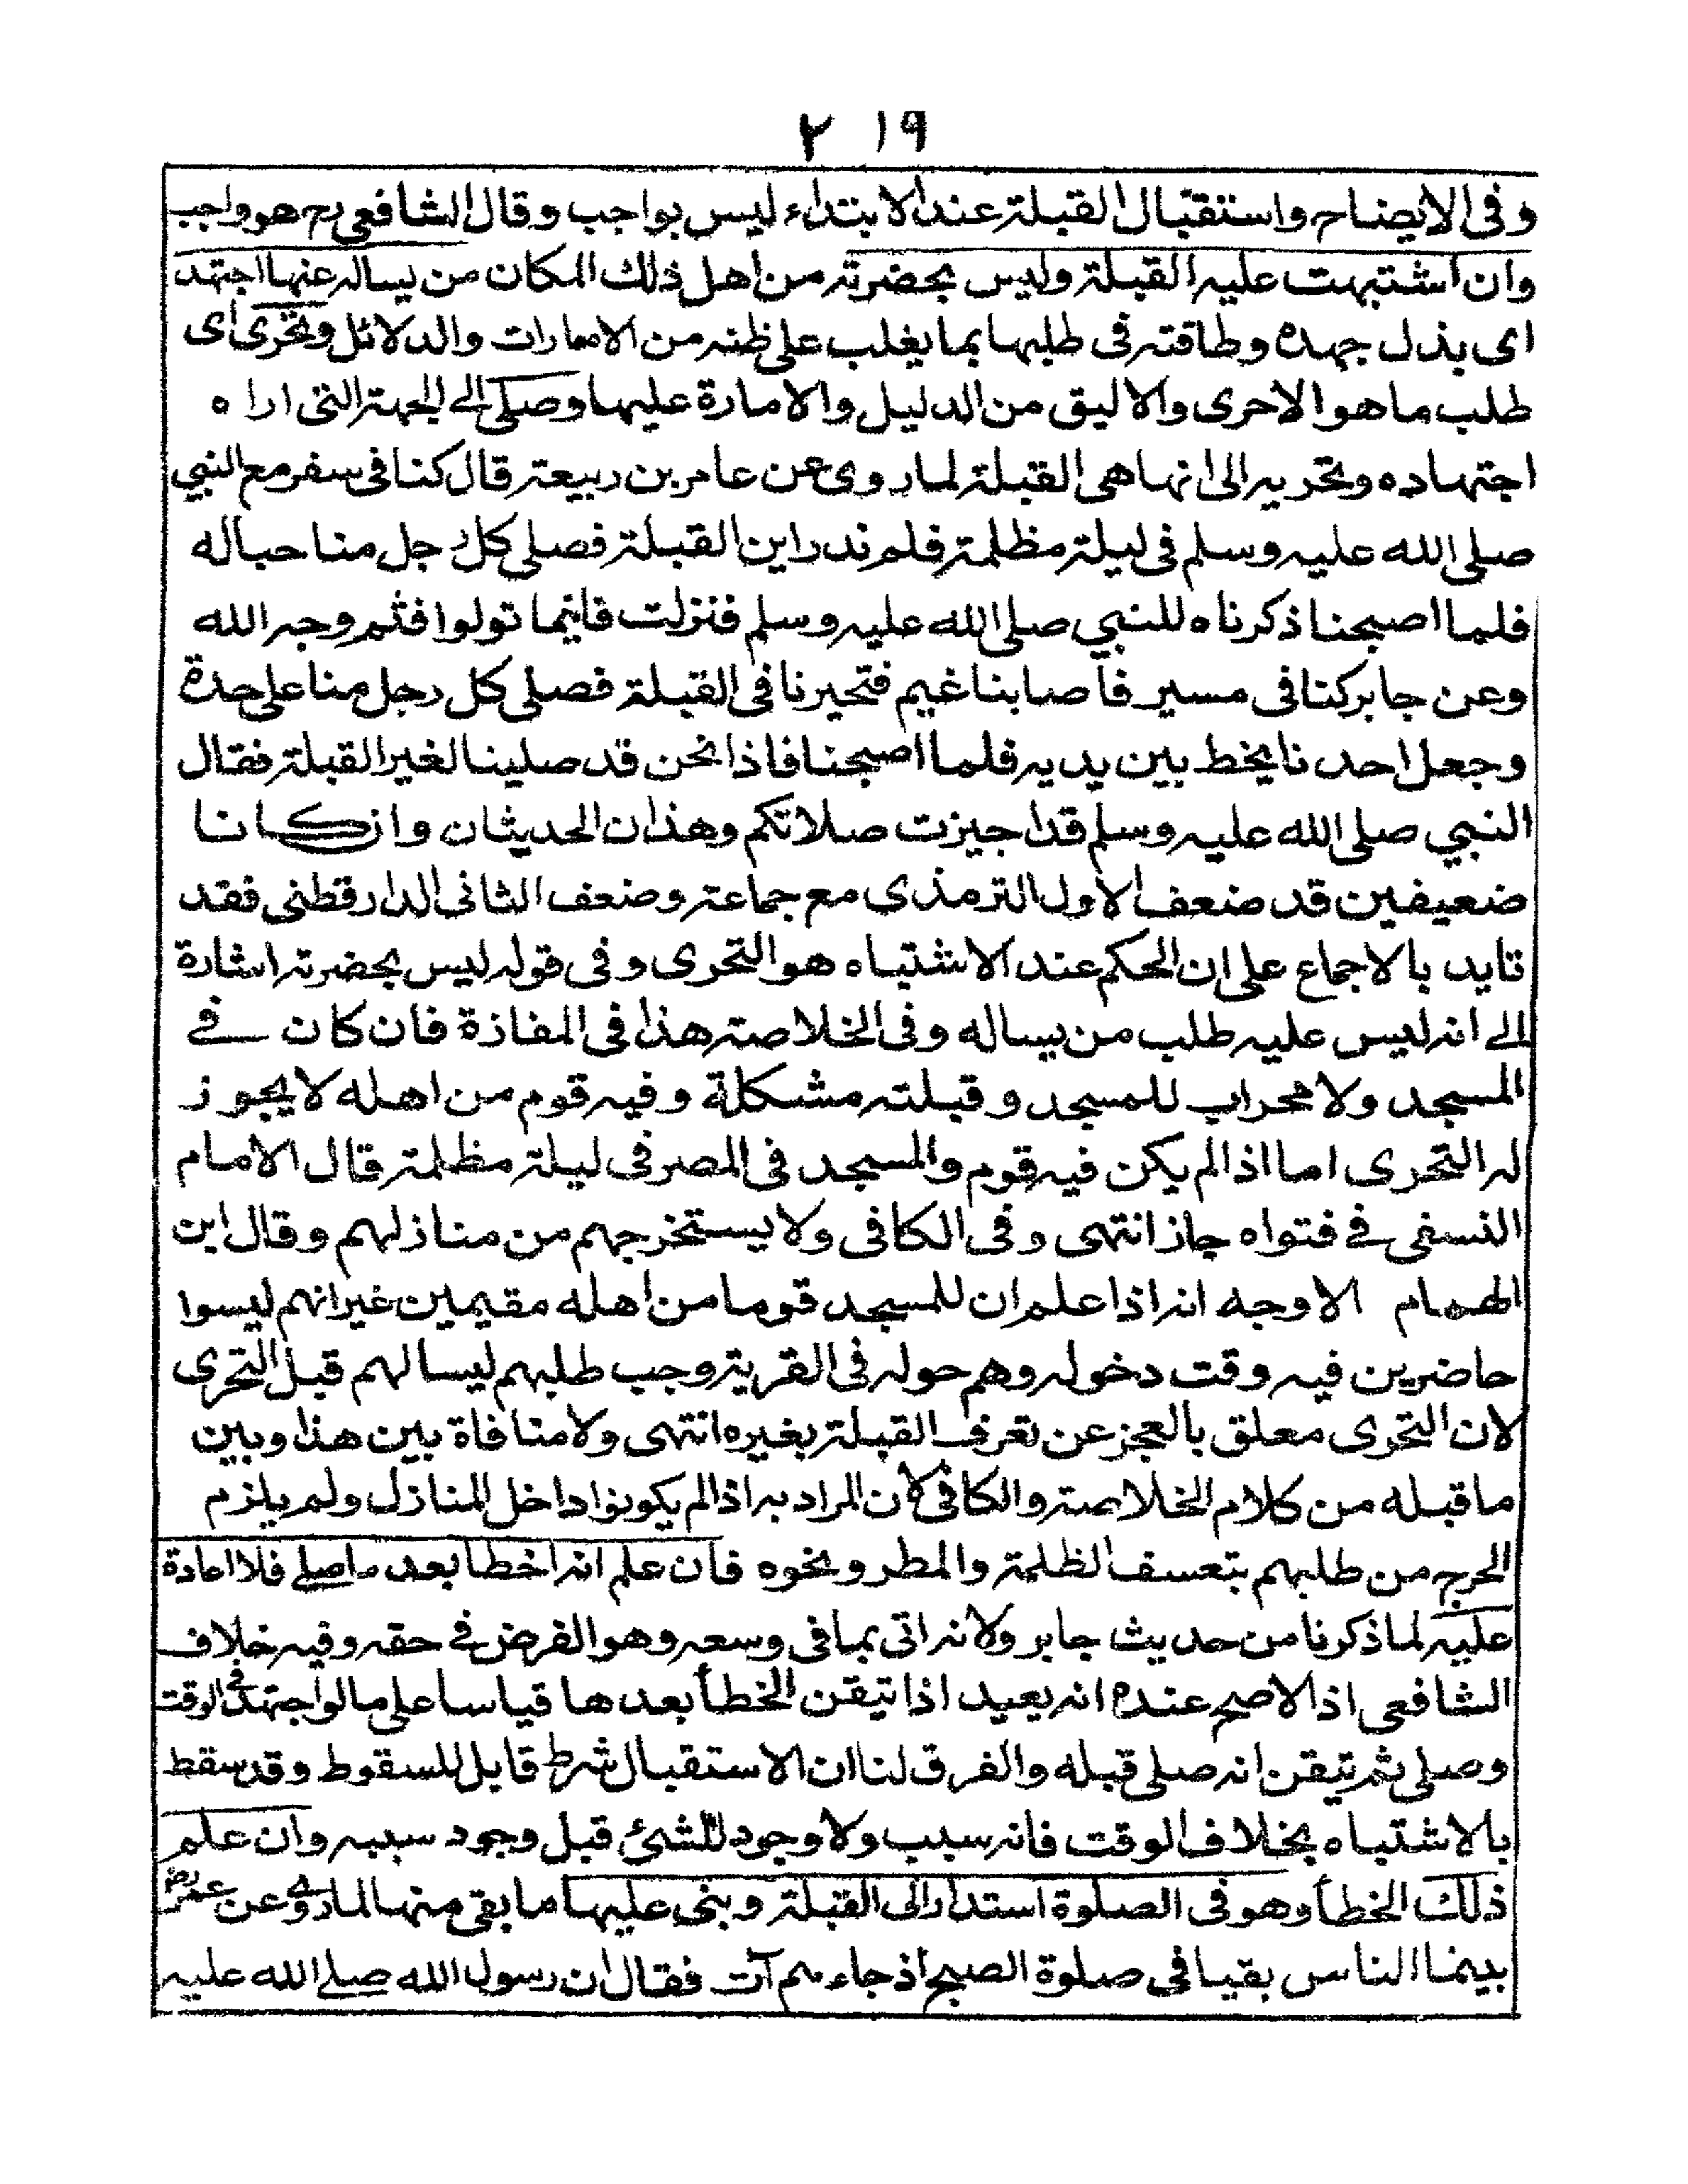 ٢١٩
وفى الايضاح واستقبال القبلة عند الابتداء ليس بواجب وقال الشافعى رح هو واجب
وان اشتبهت عليه القبلة وليس بحضرته من اهل ذلك المكان من يساله عنها اجتهد
اى بذل جهده وطاقته فى طلبها بما يغلب على ظنه من الامارات والدلائل وتحرى اى
طلب ما هو الاحرى والاليق من الدليل والامارة عليها وصلى الى الجهة التى اراه
اجتهاده وتحريه الى انها هى القبلة لما روى عن عامر بن ربيعة قال كنا فى سفر مع النبي
صلى الله عليه وسلم فى ليلة مظلمة فلم ندر اين القبلة فصلى كل رجل منا حياله
فلما اصبحنا ذكرناه للنبي صلى الله عليه وسلم فنزلت فاينما تولوا فثم وجه الله
وعن جابر كنا فى مسير فاصابنا غيم فتحيرنا فى القبلة فصلى كل رجل منا على حدة
وجعل احدنا يخط بين يديه فلما اصبحنا فاذا نحن قد صلينا لغير القبلة فقال
النبي صلى الله عليه وسلم قد اجيزت صلاتكم وهذان الحديثان وان كانا
ضعيفين قد ضعف الاول الترمذى مع جماعة وضعف الثانى الدارقطنى فقد
تايد بالاجماع على ان الحكم عند الاشتباه هو التحرى وفى قوله ليس بحضرته اشارة
الى انه ليس عليه طلب من يساله وفى الخلاصة هذا فى المفازة فان كان فى
المسجد ولا محراب للمسجد وقبلته مشكلة وفيه قوم من اهله لا يجوز
له التحرى اما اذا لم يكن فيه قوم والمسجد فى المصر فى ليلة مظلمة قال الامام
النسفى فى فتواه جاز انتهى وفى الكافى ولا يستخرجهم من منازلهم وقال ابن
الهمام الاوجه انه اذا علم ان للمسجد قوما من اهله مقيمين غير انهم ليسوا
حاضرين فيه وقت دخوله وهم حوله فى القرية وجب طلبهم ليسالهم قبل التحرى
لان التحرى معلق بالعجز عن تعرف القبلة بغيره انتهى ولا منافاة بين هذا وبين
ما قبله من كلام الخلاصة والكافى لان المراد به اذا لم يكونوا داخل المنازل ولم يلزم
الحرج من طلبهم بتعسف الظلمة والمطر ونحوه فان علم انه اخطا بعد ما صلى فلا اعادة
عليه لما ذكرنا من حديث جابر ولانه اتى بما فى وسعه وهو الفرض فى حقه وفيه خلاف
الشافعى اذ الاصح عنده انه يعيد اذا تيقن الخطأ بعدها قياسا على ما لو اجتهد فى الوقت
وصلى ثم تيقن انه صلى قبله والفرق لنا ان الاستقبال شرط قابل للسقوط وقد سقط
بالاشتباه بخلاف الوقت فانه سبب ولا وجود للشئ قبل وجود سببه وان علم
ذلك الخطأ وهو فى الصلوة استدار الى القبلة وبنى عليها ما بقى منها لما روى عن عمر رض
بينما الناس بقبا فى صلوة الصبح اذ جاءهم آت فقال ان رسول الله صلى الله عليه